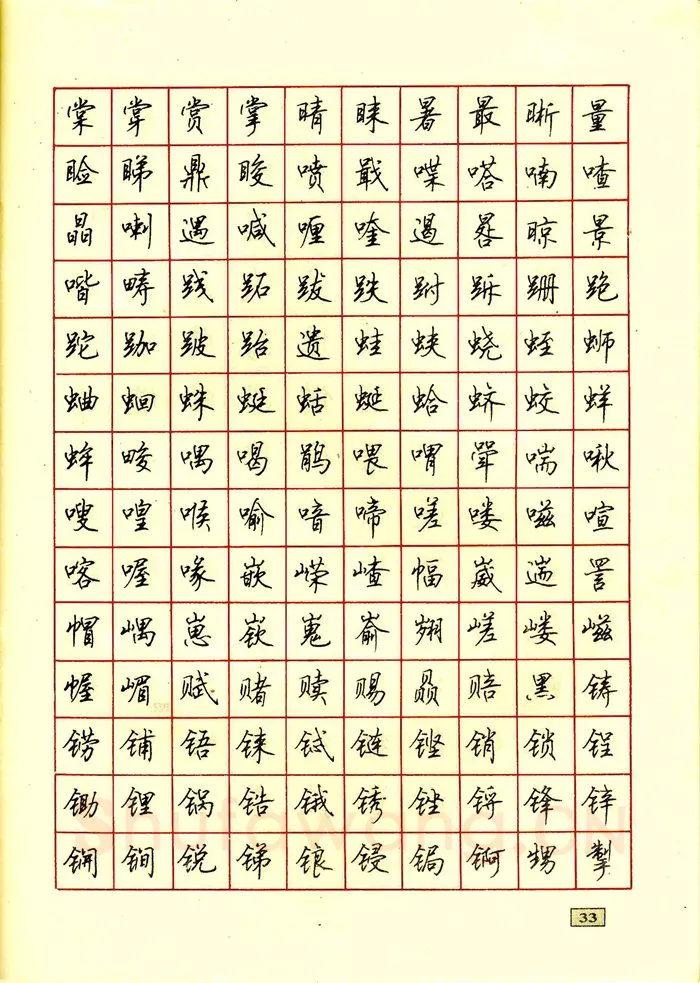 棠牚赏掌晴睐暑最晰量
睑睇鼎睃喷戢喋嗒喃喳
晶喇遇喊喱喹遏晷晾景
喈畴践跖跋跌跗跞跚跑
跎跏跛跆遗蛙蛱蛲蛭蛳
蛐蛔蛛蜓蛞蜒蛤蛴蛟蛘
蛑畯喁喝鹃喂喟斝喘啾
嗖喤喉喻喑啼嗟喽嗞喧
喀喔喙嵌嵘嵖幅崴遄詈
帽嵎崽嵚嵬嵛翙嵯嵝嵫
幄嵋赋赌赎赐赑赔黑铸
铹铺铻铼铽链铿销锁锃
锄锂锅锆锇锈锉锊锋锌
Shufawang.CN
锎锏锐锑锒锓锔锕甥掣
33